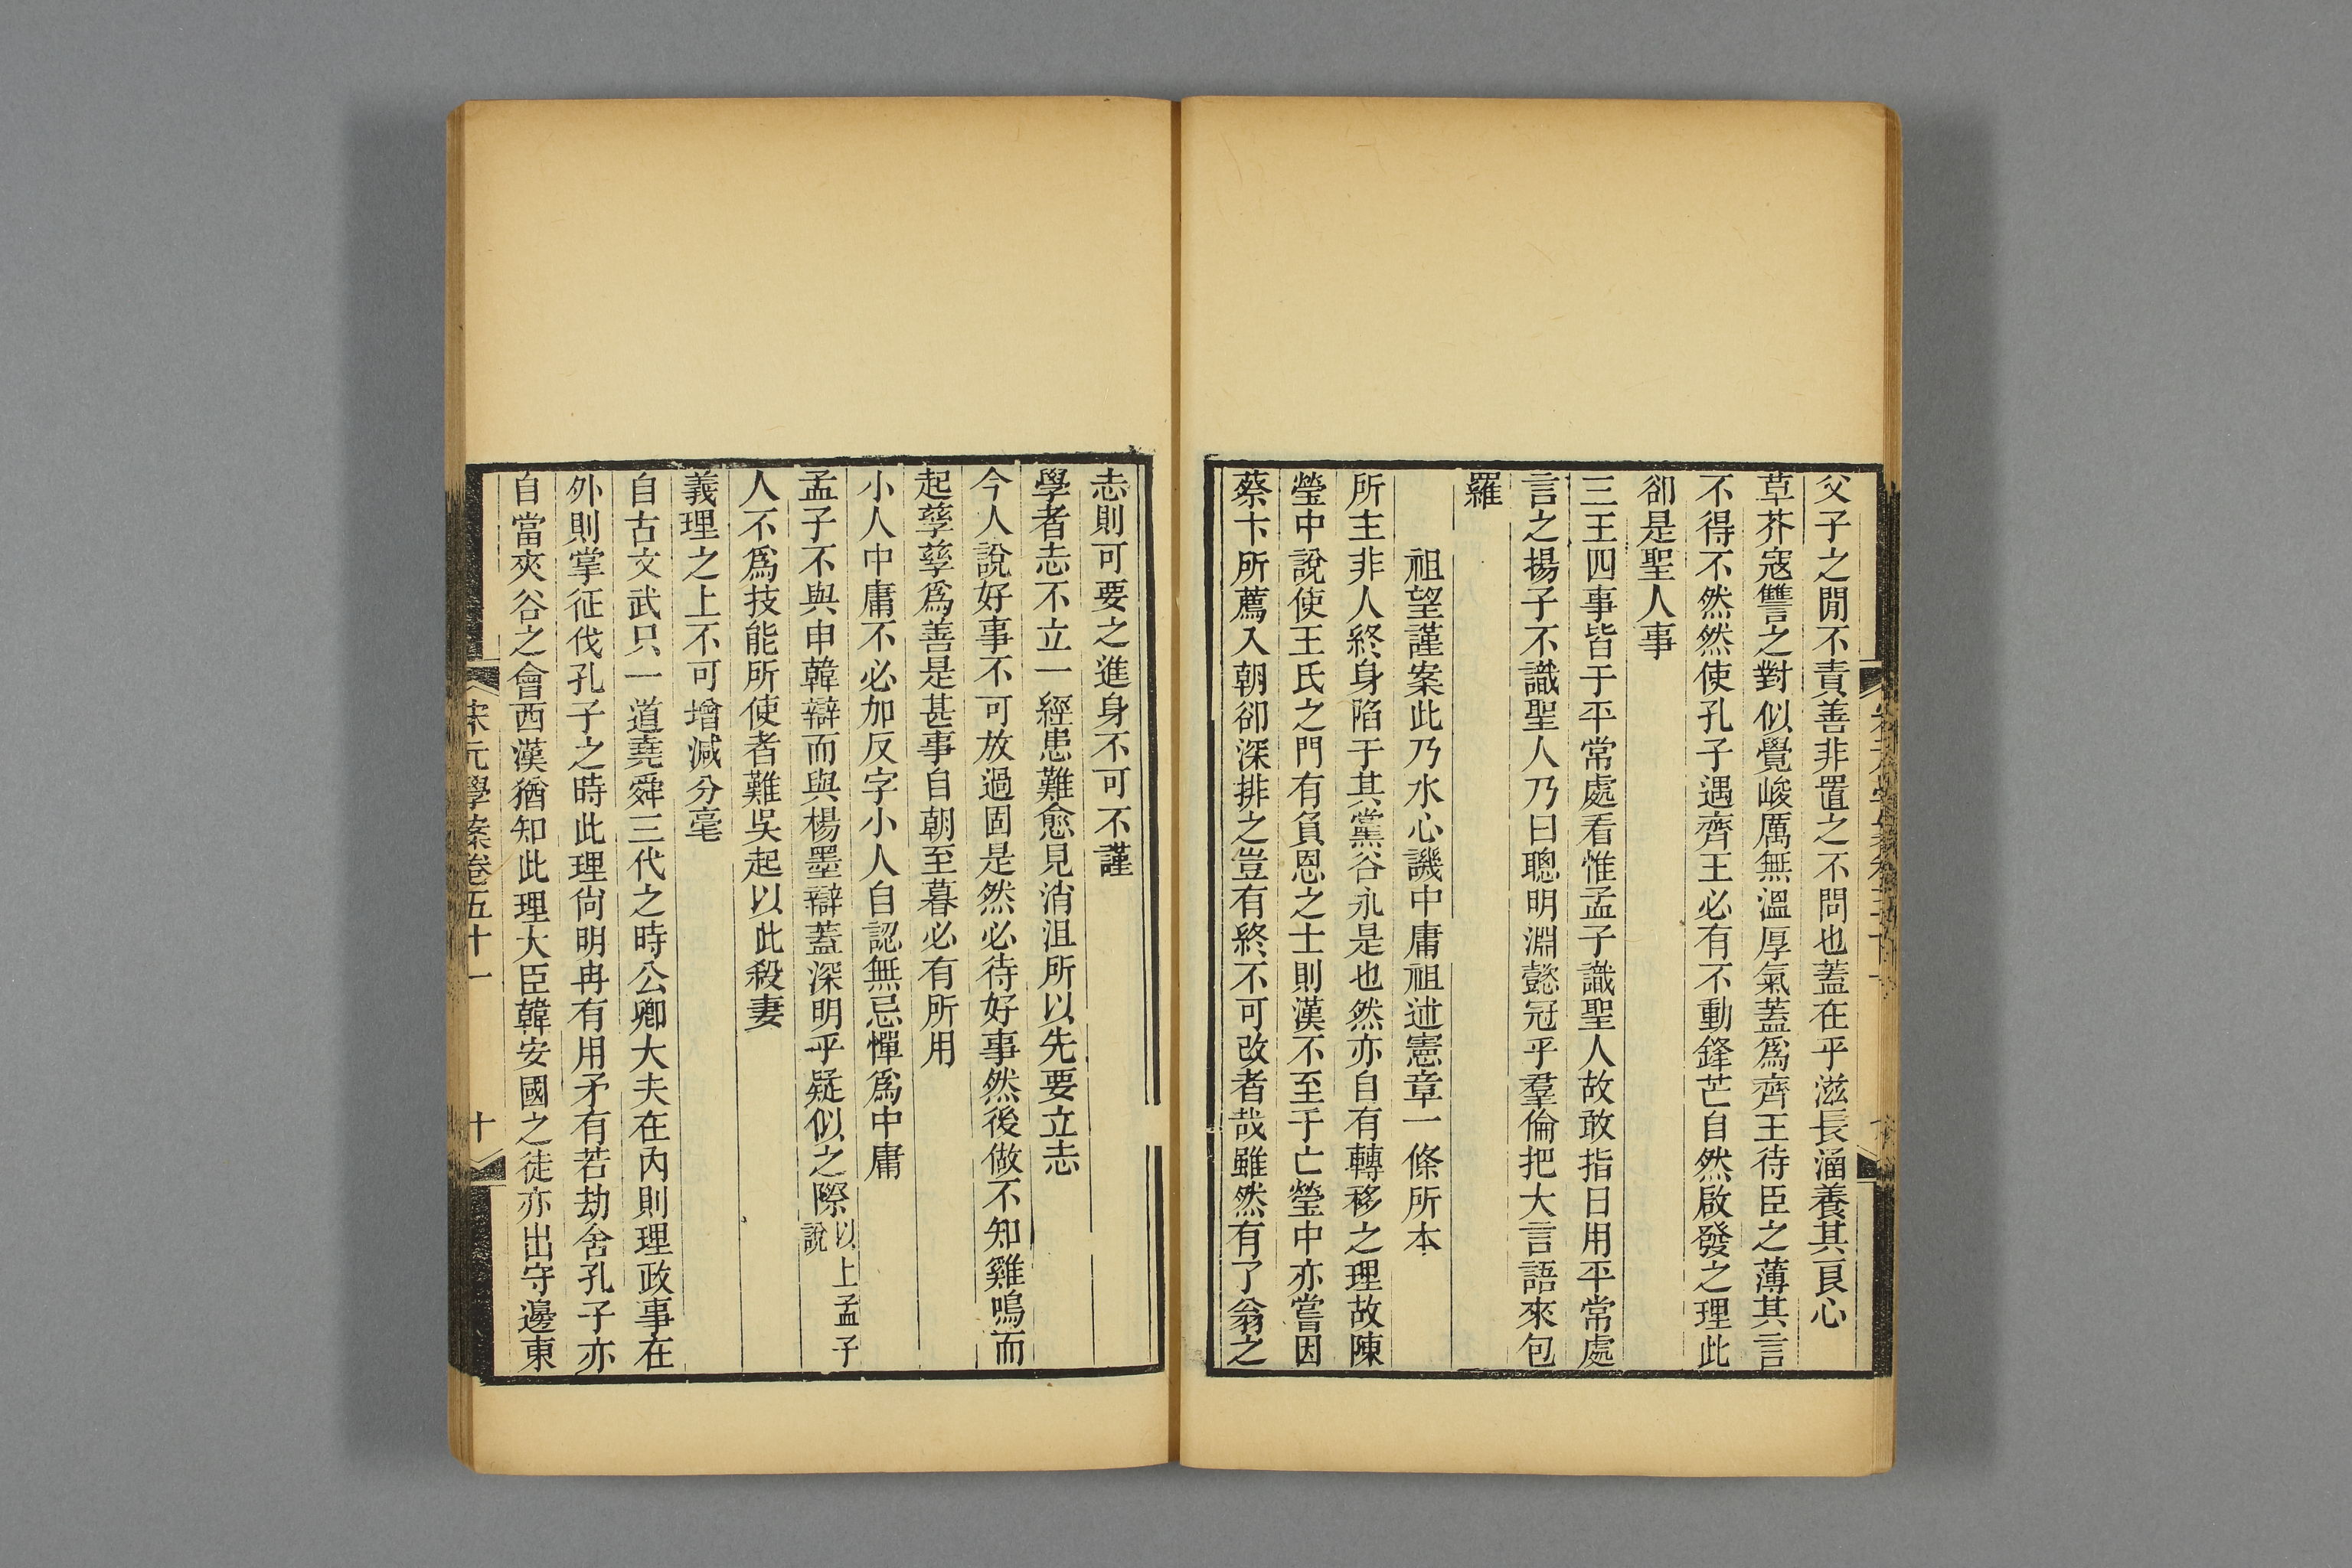 父子之閒不責善非置之不問也蓋在乎滋長涵養其良心
草芥寇讐之對似覺峻厲無溫厚氣蓋爲齊王待臣之薄其言
不得不然然使孔子遇齊王必有不動鋒芒自然啟發之理此
卻是聖人事
三王四事皆于平常處看惟孟子識聖人故敢指日用平常處
言之揚子不識聖人乃曰聰明淵懿冠乎羣倫把大言語來包
羅
祖望謹案此乃水心譏中庸祖述憲章一條所本
所主非人終身陷于其黨谷永是也然亦自有轉移之理故陳
瑩中說使王氏之門有負恩之士則漢不至于亡瑩中亦嘗因
蔡卞所薦入朝卻深排之豈有終不可改者哉雖然有了翁之
志則可要之進身不可不謹
學者志不立一經患難愈見消沮所以先要立志
今人說好事不可放過固是然必待好事然後做不知雞鳴而
起孳孳爲善是甚事自朝至暮必有所用
小人中庸不必加反字小人自認無忌憚爲中庸
孟子不與申韓辯而與楊墨辯蓋深明乎疑似之際以上孟子說
人不爲技能所使者難吳起以此殺妻
義理之上不可增減分毫
自古文武只一道堯舜三代之時公卿大夫在內則理政事在
外則掌征伐孔子之時此理尙明冉有用矛有若劫舍孔子亦
自當夾谷之會西漢猶知此理大臣韓安國之徒亦出守邊東
宋元學案卷五十一
十